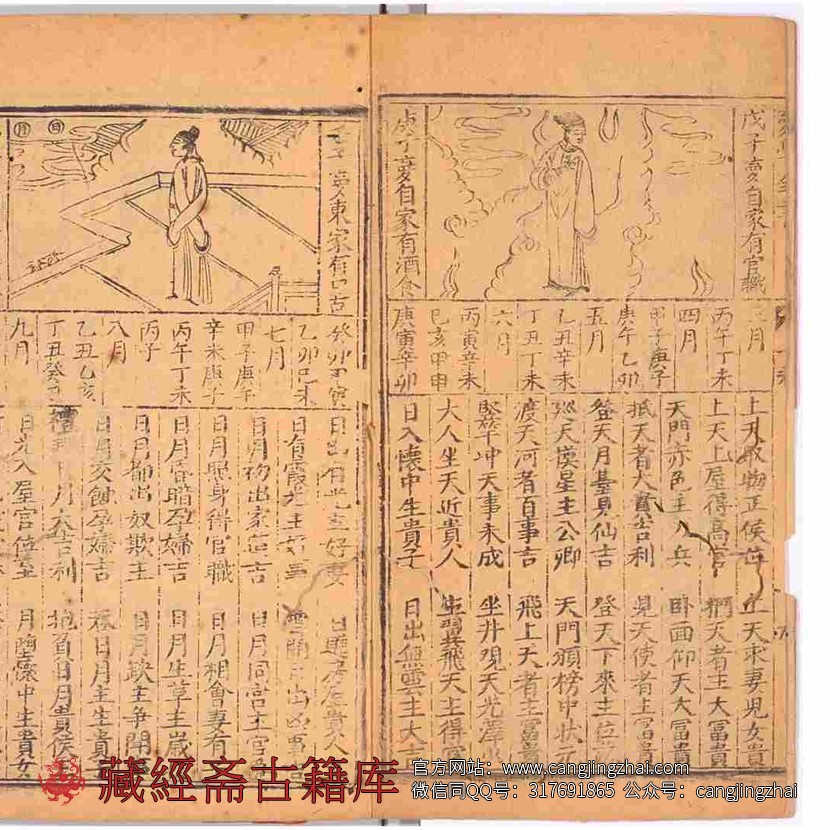 戊子夢自家有官職
庚子夢自家有酒食
三月
丙午丁未
四月
甲子庚子
庚午乙卯
五月
乙丑辛未
丁丑丁未
六月
丙寅辛未
己亥甲申
庚寅辛卯
上天取物正侯位
上天求妻兒女貴
上天上屋得高官
天者主大富貴
天門赤色主
兵
卧面仰天大富貴
抵天者大貴吉利
見天使者主富貴
登天月臺見仙吉
登天下來主位
巡天漢星主公卿
天門領榜中狀元
渡天河者百事吉
飛上天者主富貴
坤天事未成
坐井觀天光
大人坐天近貴人
生翼飛天主得官
日入懷中生貴子
日出無雲主大吉
夢東家有口舌
日
月
癸卯
乙卯己未
七月
甲子庚子
辛未庚子
丙午丁未
丙子
八月
乙丑乙亥
丁丑癸
九月
日出有光主好妻
日有霞光主好
日月初出家宅吉
日月同宮主官
日月照身得官職
日月相會妻有
日月昏暗孕婦吉
日月生草主歲
日月都出奴欺主
日月缺主爭鬧
日月交蝕孕婦吉
吞日月主生貴
日月大吉利
抱負日月貴侯
日光入屋官位至
月墮懷中生貴女
藏經斋古籍库
官方网站：www.cangjingzhai.com
微信同QQ号：317691865 公众号：cangjingzhai